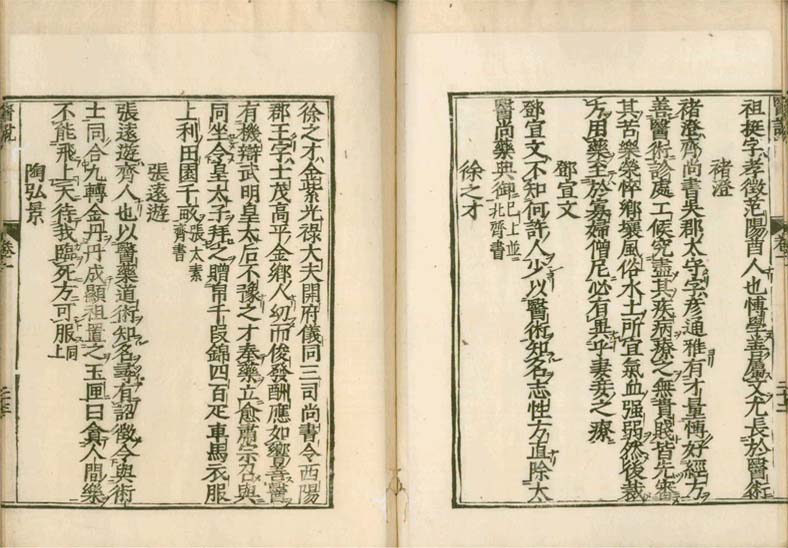 祖挺字孝徵范陽酋人也愽學善屬文尤長於醫術
褚澄
褚澄齊尚書吳郡太守字彥通雅有才量愽好經方
善醫術診處工候究盡其疾病療之無貴賤皆先審
其苦樂榮悴鄉壤風俗水土所宜氣血强弱然後裁
方用藥至於寡婦僧尼必有異乎妻妾之療
鄧宣文
鄧宣文不知何許人少以醫術知名志性方直除太
醫尚藥典御已上並北齊書
徐之才
徐之才金紫光祿大夫開府儀同三司尚書令西陽
郡王字士茂高平金鄉人幼而俊發酬應如響善醫
有機辯武明皇太后不豫之才奉藥立愈肅宗召與
同坐令皇太子拜之贈帛千段錦四百疋車馬衣服
上利田園千畝張太素齊書
張遠遊
張遠遊齊人也以醫藥道術知名尋有詔徵令與術
士同合九轉金丹丹成顯祖置之玉匣曰貪人間樂
不能飛上天待我臨死方可服同上
陶弘景